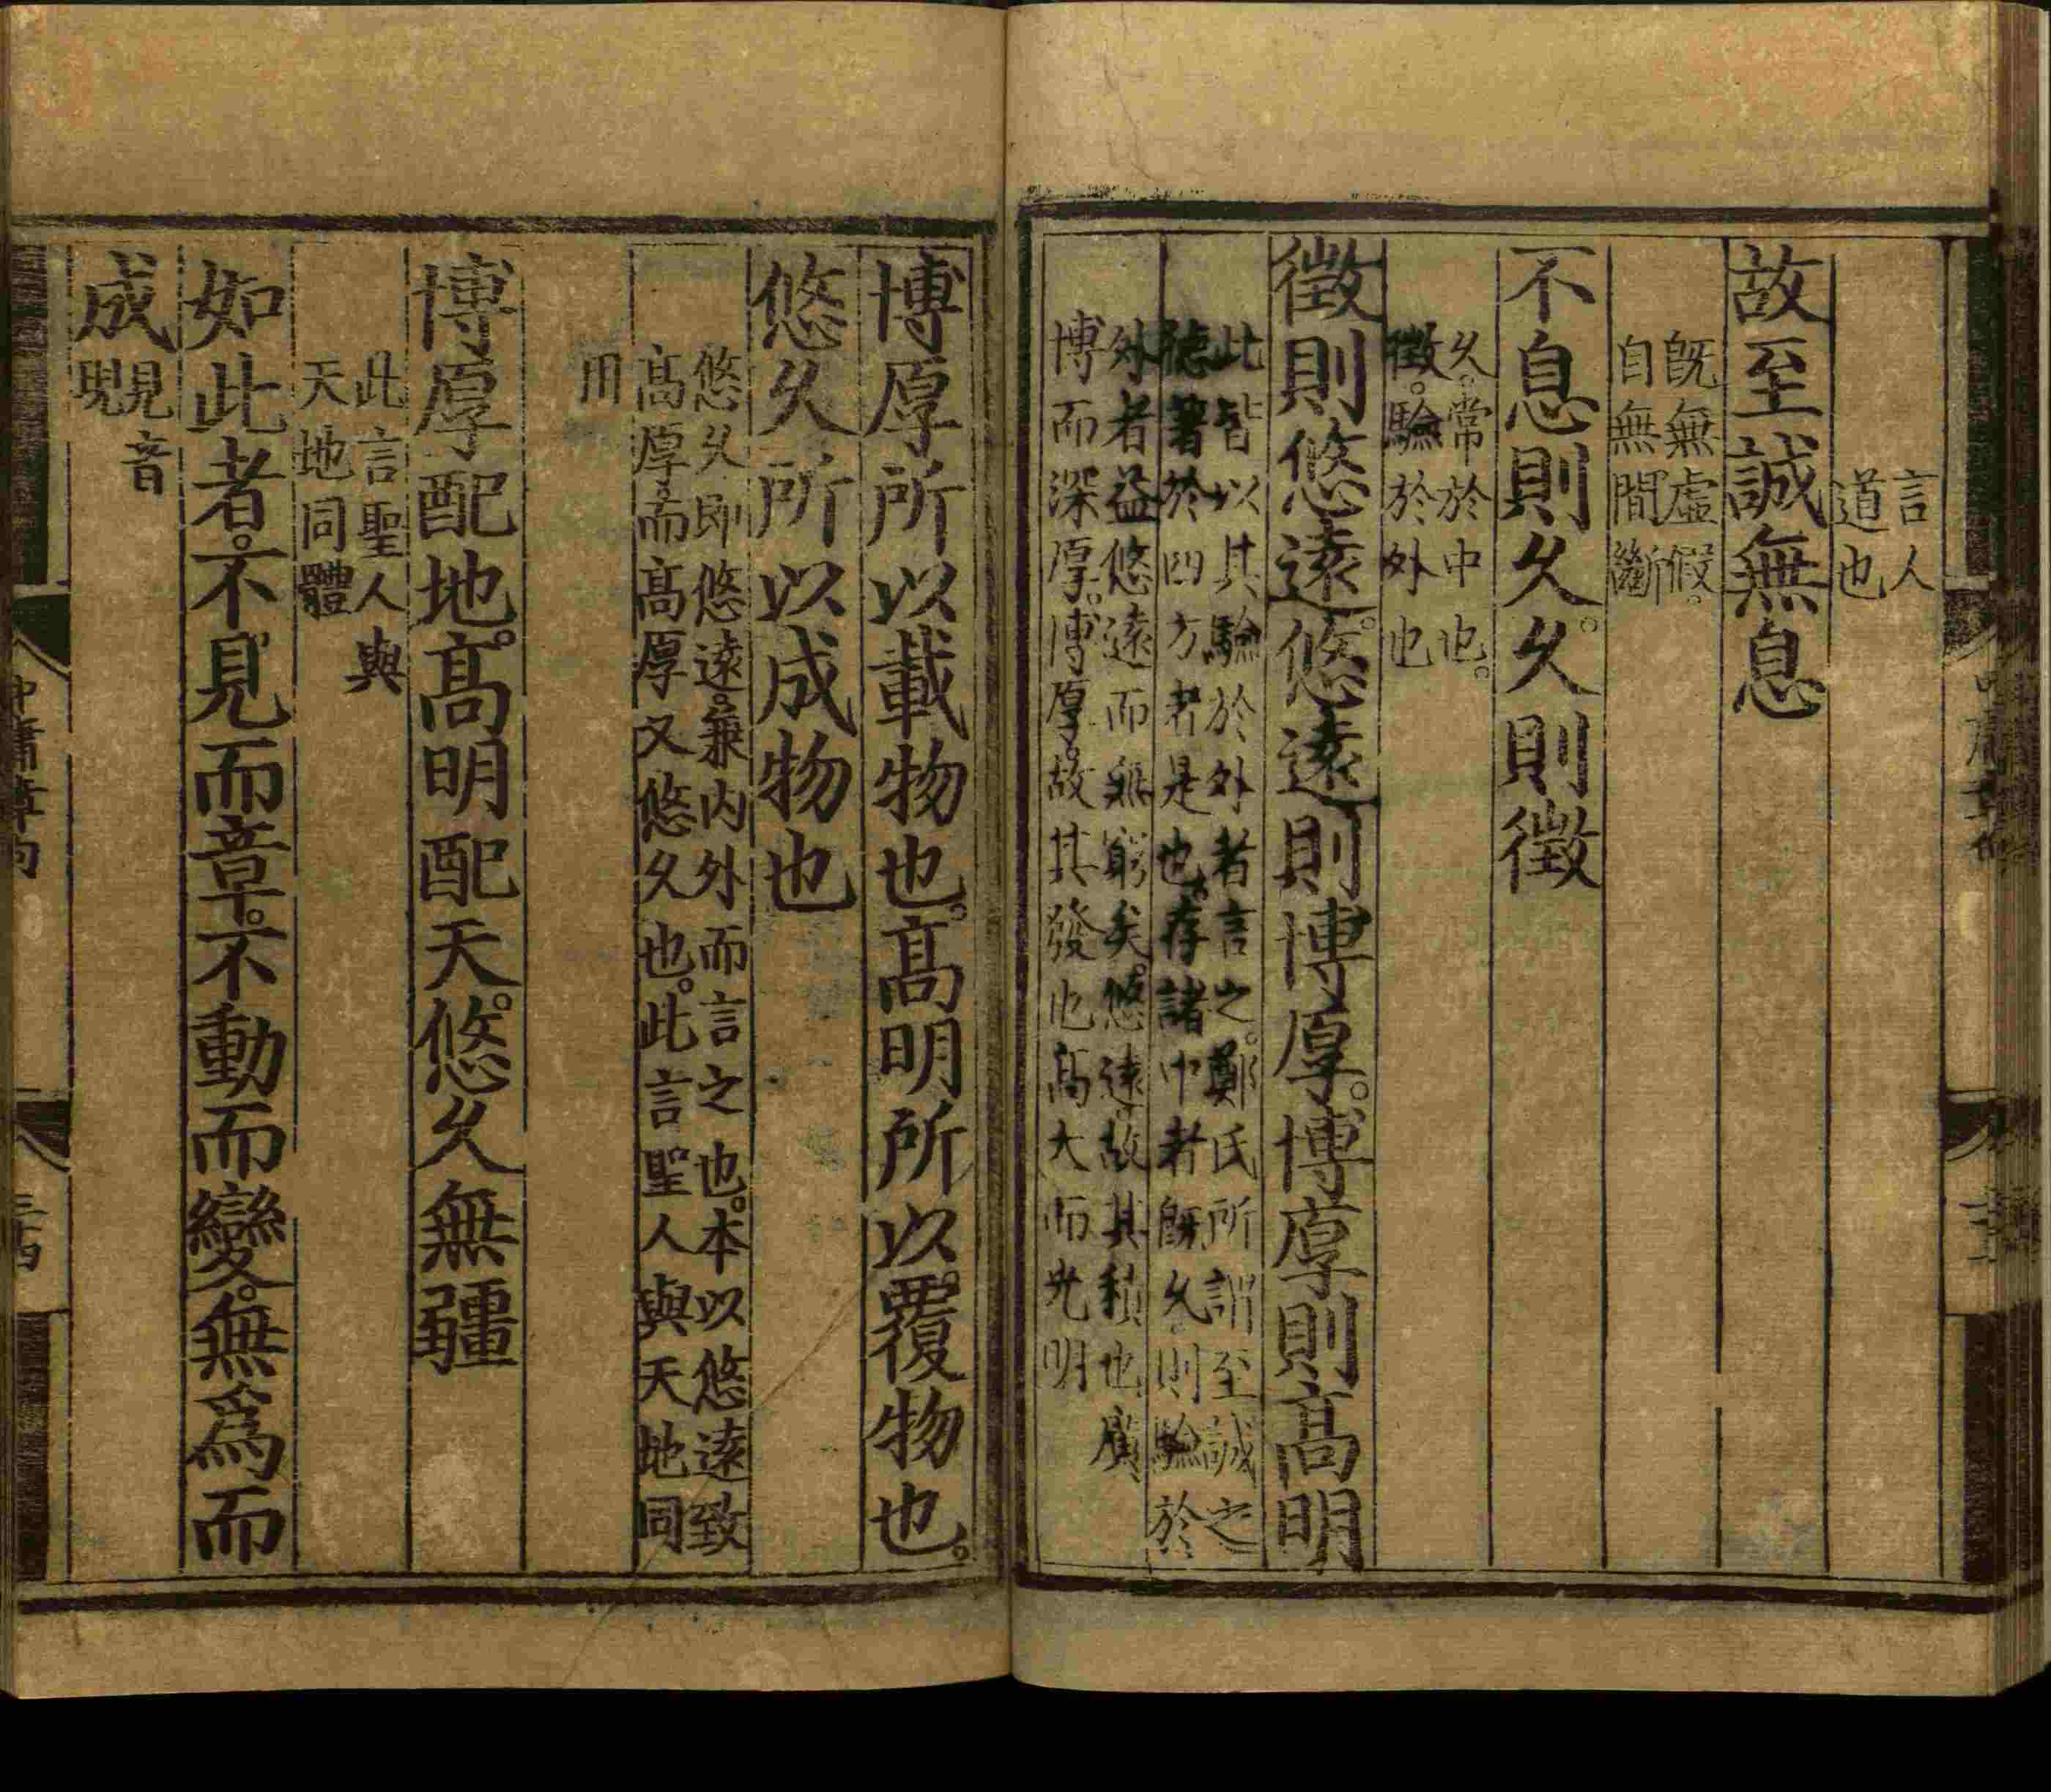 言人
道也
故至誠無息
既無虛假。
自無間斷
不息則久。久則徵
久。常於中也。
徵。驗於外也
徵則悠遠。悠遠則博厚。博厚則高明
此皆以其驗於外者言之。鄭氏所謂至誠之
德著於四方者是也。存諸中者既久。則驗於
外者益悠遠而無窮矣。悠遠故其積也廣
博而深厚。博厚。故其發也高大而光明
博厚所以載物也。高明所以覆物也。
悠久所以成物也
悠久即悠遠。兼內外而言之也。本以悠遠致
高厚。而高厚又悠久也。此言聖人與天地同
用
博厚配地。高明配天。悠久無疆
此言聖人與
天地同體
如此者。不見而章。不動而變。無爲而
成見音
現
中庸章句
三四